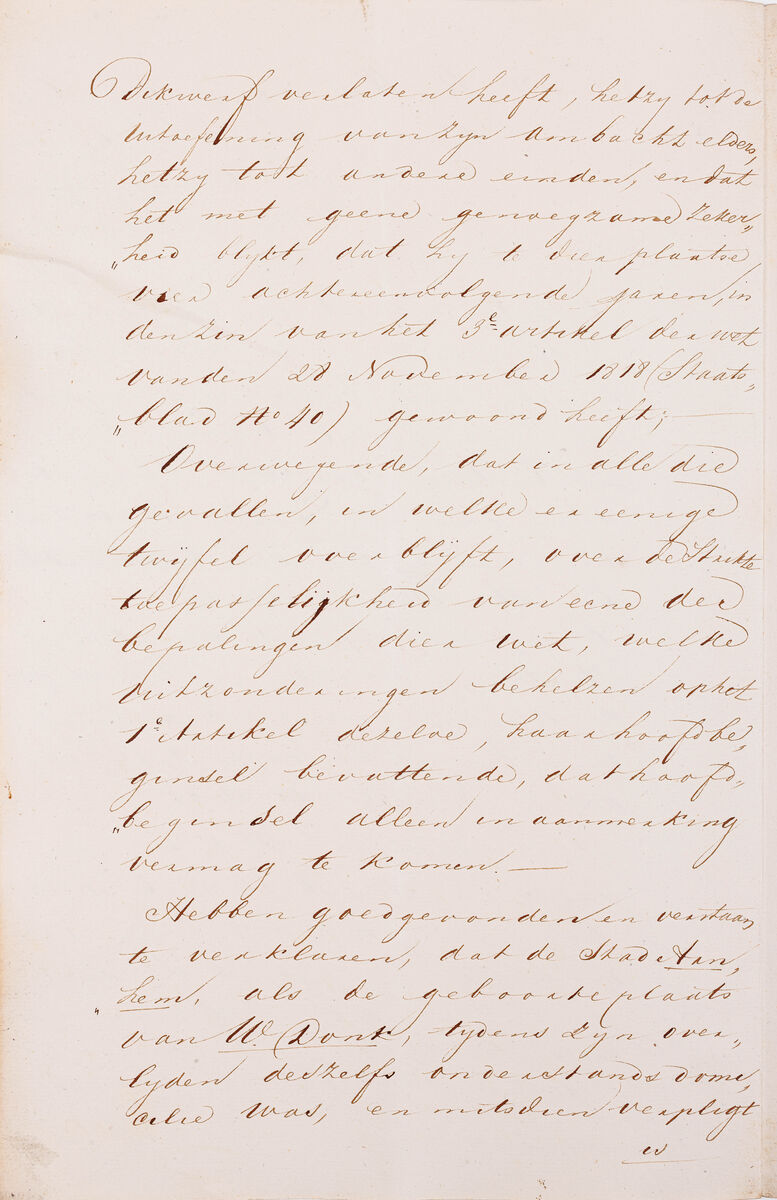 Dikwerf verlaten heeft, hetzy tot de
uitoefening van zyn ambacht elders,
hetzy tot andere einden, en dat
het met geene genoegzame zeker„
„heid blykt, dat hy te dier plaatse
vier achtereenvolgende jaren, in
den zin van het 3e artikel der wet
van den 28 November 1818 (Staats„
„blad No 40) gewoond heeft;
Overwegende, dat in alle die
gevallen, in welke er eenige
twijfel overblijft, over de Strikte
toepasselijkheid van eene der
bepalingen dier wet, welke
uitzonderingen behelzen op het
1e Artikel dezelve, haar hoofdbe„
ginsel bevattende, dat hoofd„
„beginsel alleen in aanmerking
vermag te komen. —
Hebben goedgevonden en verstaan
te verklaren, dat de Stad Arn„
„hem, als de geboorteplaats
van W. Dont, tydens zyn over„
lyden deszelfs onderstands domi„
cilie was, en mitsdien verpligt
is